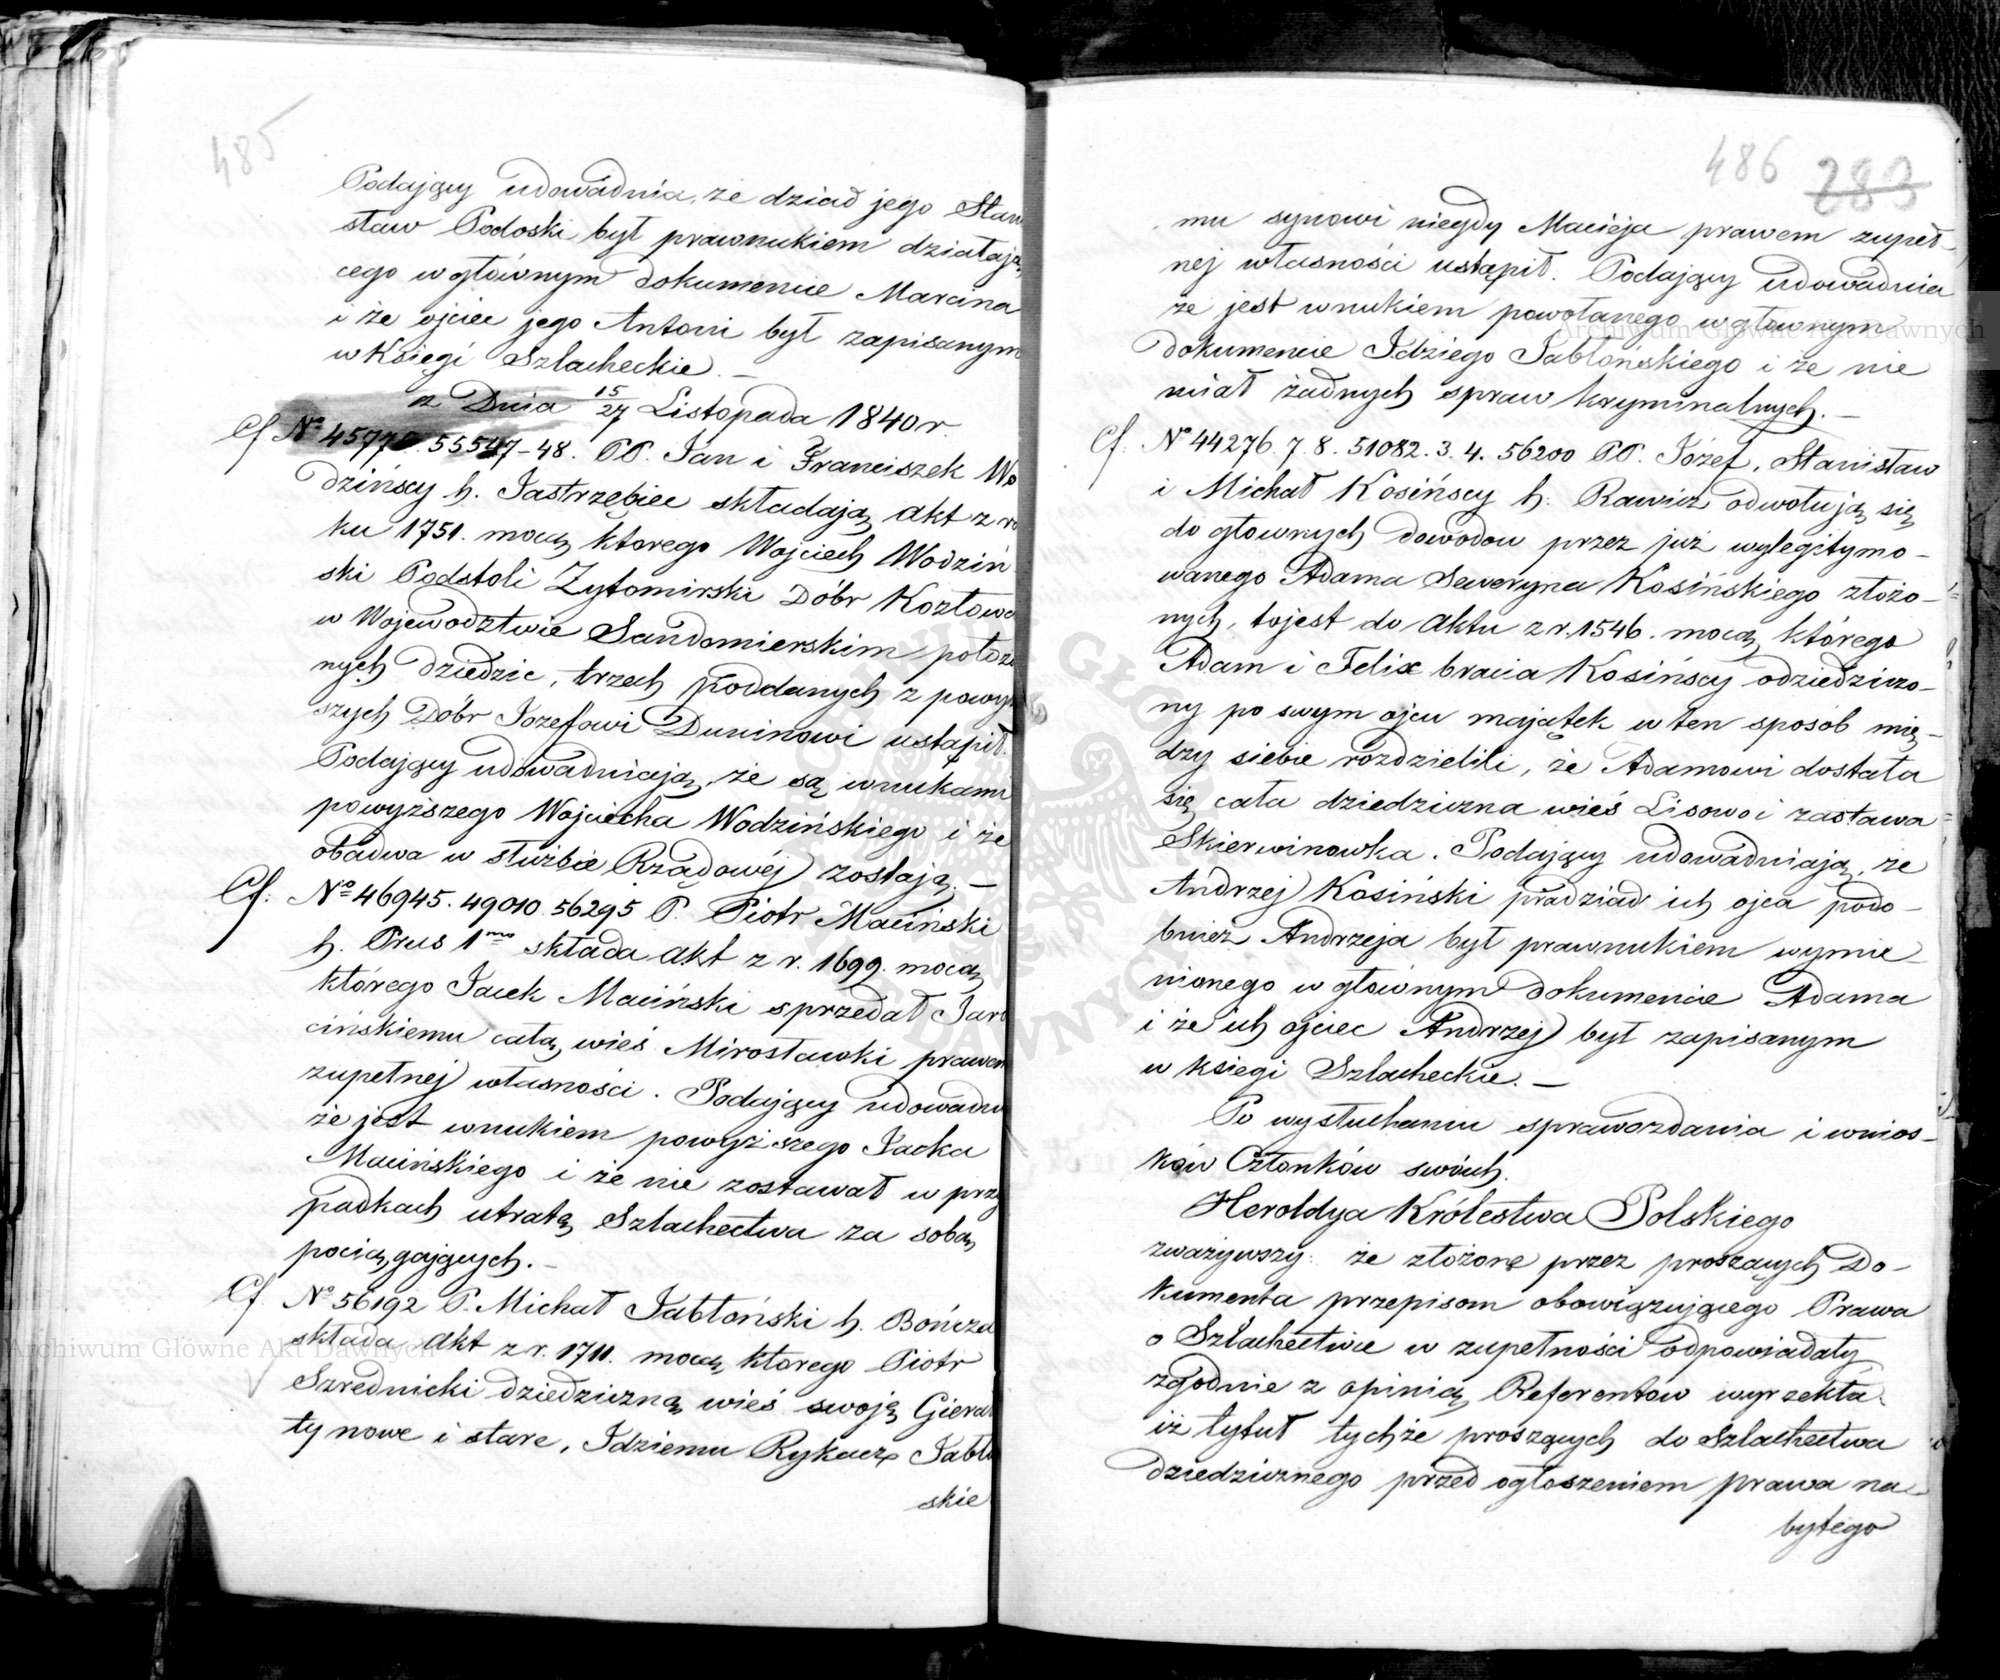 485
Podający udowadnia, że dziad jego Stani
sław Podoski był prawnukiem działają
cego w głównym dokumencie Marcina
i że ojciec jego Antoni był zapisanym
w Księgi Szlacheckie. —
z Dnia 15/27 Listopada 1840 r.
Cf. No 4577 . 55547-48. PP. Jan i Franciszek Wo
dzińscy h. Jastrzębiec składają akt z ro
ku 1751. mocą ktorego Wojciech Wodziń
ski Podstoli Zytomirski Dóbr Kozłowa
w Województwie Sandomierskim położo
nych dziedzic, trzech poddanych z powyż
szych Dóbr Jozefowi Duninowi ustąpił.
Podający udowadniają, że są wnukami
powyższego Wojciecha Wodzińskiego i że
obadwa w służbie Rządowéj zostają. —
Cf: No 46945. 49010. 56295 P. Piotr Maciński
h. Prus 1mo składa akt z r. 1699. mocą
którego Jacek Maciński sprzedał Jaro
cińskiemu całą wieś Mirosławki prawem
zupełnej własności. Podający udowadn
że jest wnukiem powyższego Jacka
Macińskiego i że nie zostawał w przy
padkach utratę Szlachectwa za sobą
pociągających. —
Cf. No 56192 P. Michał Jabłoński h. Bończa
składa akt z r. 1711. mocą ktorego Piotr
Szrednicki dziedziczną wieś swoję Giera
ty nowe i stare, Idziemu Rykacz Jabło
skie
486 283
mu synowi niegdy Macieja prawem zupeł-
nej własności ustąpił. Podający udowadnia
że jest wnukiem powołanego w głownym
dokumencie Idziego Jabłońskiego i że nie
miał żadnych spraw kryminalnych. —
Cf. No 44276. 7. 8. 51082. 3. 4. 56200 PP. Józef, Stanisław
i Michał Kosińscy h: Rawicz odwołują się
do głownych dowodow przez już wylegitymo-
wanego Adama Seweryna Kosińskiego złożo-
nych, tojest do aktu z r. 1546. mocą którego
Adam i Felix bracia Kosińscy odziedziczo-
ny po swym ojcu majątek w ten sposób mię-
dzy siebie rozdzielili, że Adamowi dostała
się cała dziedziczna wieś Lisowo i zastawa
Skierwinowka. Podający udowadniają, że
Andrzej Kosiński pradziad ich ojca podo-
bnież Andrzeja był prawnukiem wymie-
nionego w głównym dokumencie Adama
i że ich ojciec Andrzej był zapisanym
w księgi Szlacheckie. —
Po wysłuchaniu sprawozdania i wnios-
ków Członków swóich.
Heroldya Królestwa Polskiego
zważywszy: że złóżone przez proszących Do-
kumenta przepisom obowiązującego Prawa
o Szlachectwie w zupełności odpowiadały
zgodnie z opinią Referentow wyrzekła,
iż tytuł tychże proszących do Szlachectwa
dziedzicznego przed ogłoszeniem prawa na-
bytego
Archiwum Główne Akt Dawnych
Archiwum Główne Akt Dawnych